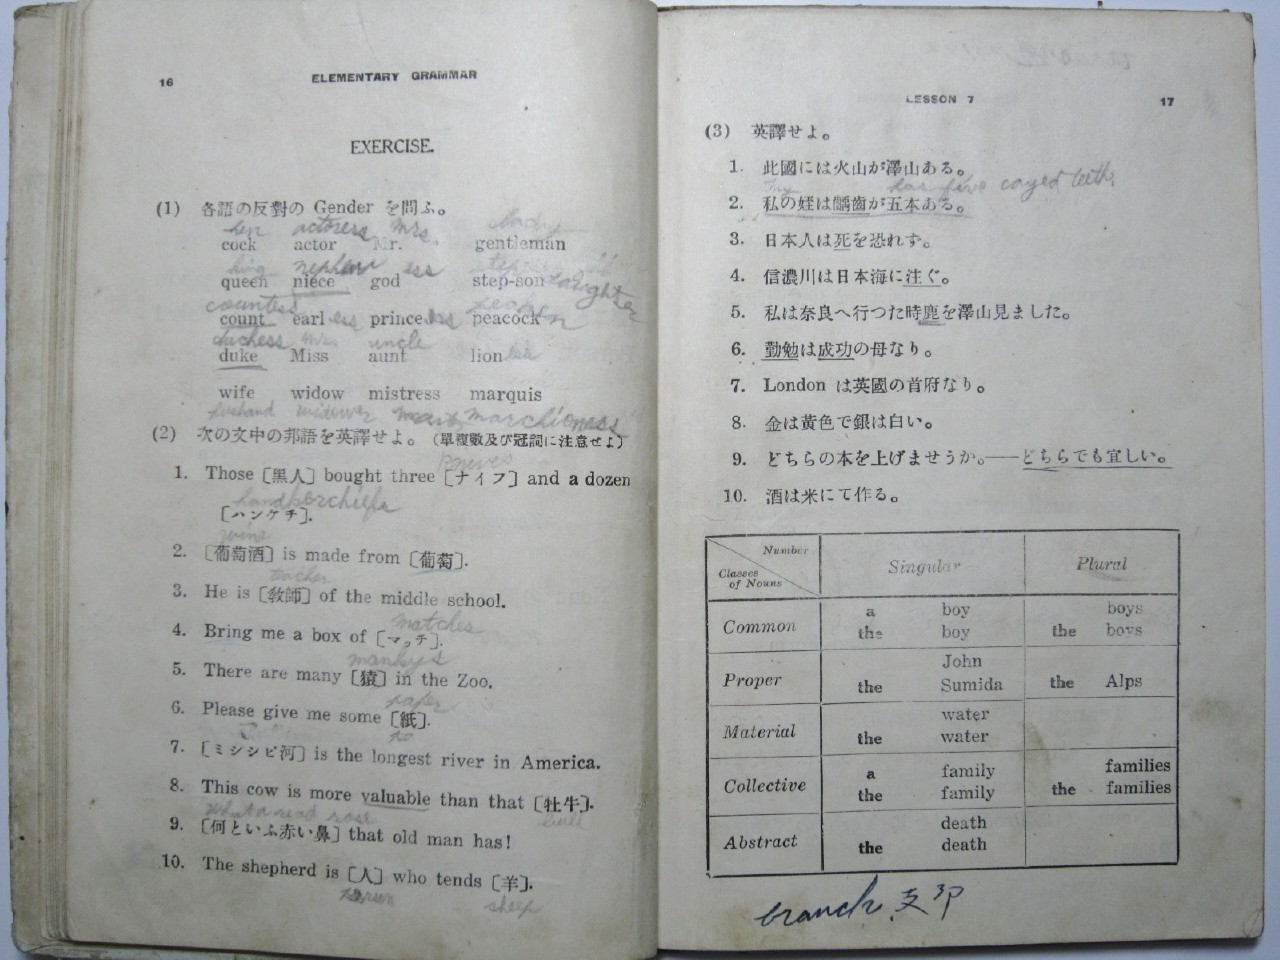 16 ELEMENTARY GRAMMAR
EXERCISE.
(1) 各語の反對の Gender を問ふ。
hen actoress Mrs. lady
cock actor Mr. gentleman
king nephew ess
queen niece god step-son daughter
countess
count earl ess prince ess peacock
duchess Mr. uncle
duke Miss aunt lion ess
wife widow mistress marquis
husband widower marchioness
(2) 次の文中の邦語を英譯せよ。 (單複數及び冠詞に注意せよ)
knives
1. Those [黒人] bought three [ナイフ] and a dozen
handkerchiefs
[ハンケチ].
wine
2. [葡萄酒] is made from [葡萄].
teacher
3. He is [敎師] of the middle school.
matches
4. Bring me a box of [マッチ].
mankys
5. There are many [猿] in the Zoo.
paper
6. Please give me some [紙].
7. [ミシシピ河] is the longest river in America.
8. This cow is more valuable than that [牡牛].
What a read rose bull
9. [何といふ赤い鼻] that old man has!
10. The shepherd is [人] who tends [羊].
person sheep
LESSON 7 17
(3) 英譯せよ。
1. 此國には火山が澤山ある。
has five cayed teeth
2. 私の姪は齲齒が五本ある。
3. 日本人は死を恐れず。
4. 信濃川は日本海に注ぐ。
5. 私は奈良へ行つた時鹿を澤山見ました。
6. 勤勉は成功の母なり。
7. London は英國の首府なり。
8. 金は黃色で銀は白い。
9. どちらの本を上げませうか。——どちらでも宜しい。
10. 酒は米にて作る。
Number
Classes of Nouns Singular Plural
Common a boy boys
the boy the boys
Proper John
the Sumida the Alps
Material water
the water
Collective a family families
the family the families
Abstract death
the death
branch 支部